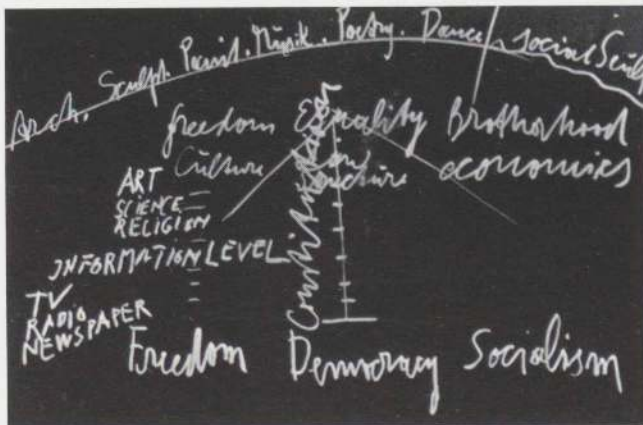 Arch. Sculpt. Paint. Musik. Poetry. Dance. Social Sculp
freedom Equality Brotherhood
Culture economics
ART
SCIENCE
RELIGION
INFORMATION LEVEL
TV
RADIO
NEWSPAPER
Freedom Democracy Socialism